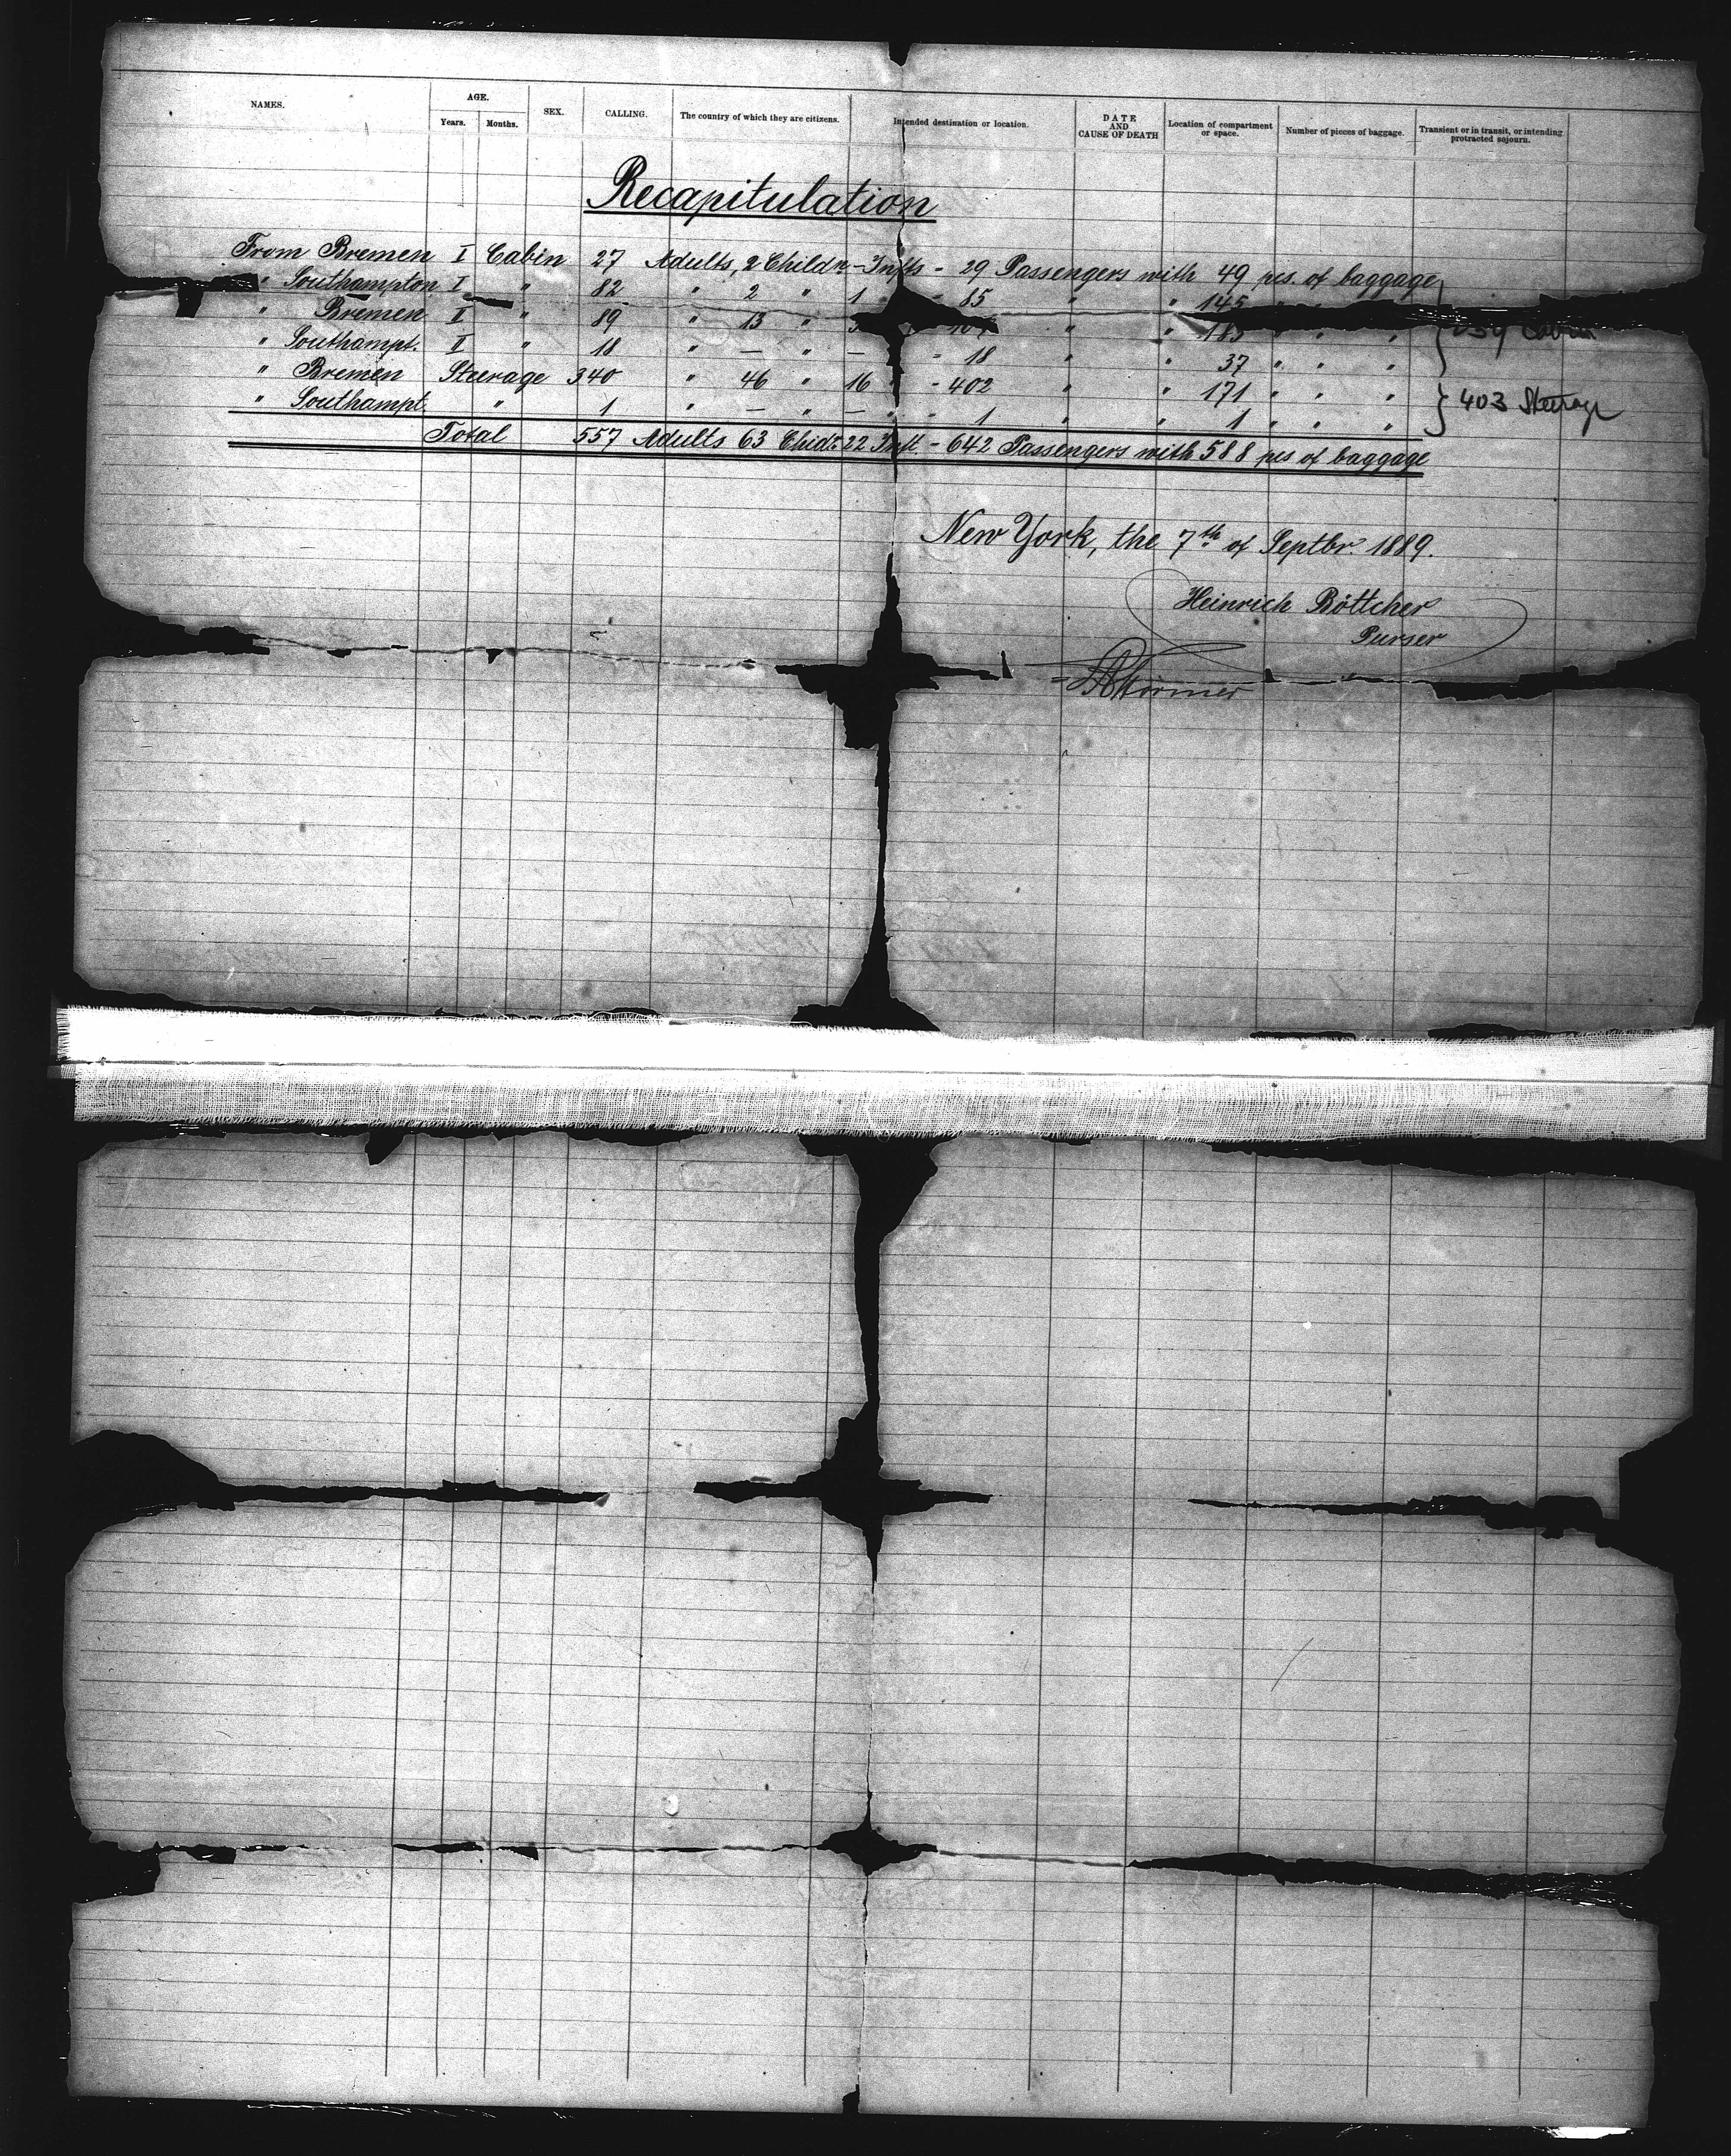 NAMES. AGE. SEX. CALLING. The country of which they are citizens. Intended destination or location. DATE AND CAUSE OF DEATH Location of compartment or space. Number of pieces of baggage. Transient or in transit, or intending protracted sojourn.
Years. Months.
Recapitulation
From Bremen I Cabin 27 Adults, 2 Childr - Infts - 29 Passengers with 49 pcs. of baggage
" Southampton I " 82 " 2 " 1 - 85 " " 145
" Bremen II " 89 " 13 " " " 183 " " "
" Southampt. II " 18 " — " — - 18 " " 37 " " "
" Bremen Steerage 340 " 46 " 16 " - 402 " " 171 " " " } 403 Steerage
" Southampt. " 1 " — " — " " 1 " " 1 " " "
Total 557 Adults 63 Childr. 22 Inft. - 642 Passengers with 588 pcs of baggage
New York, the 7th of Septbr. 1889.
Heinrich Böttcher
Purser